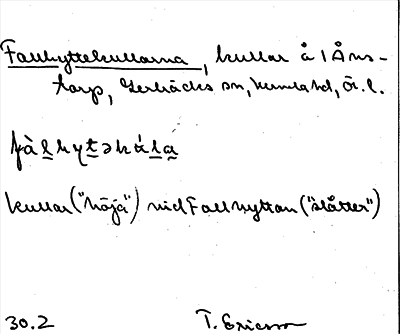 Fallhyttekullarna, kullar å 1 Åns-
torp, Gerbäcks sn, Kumla hd, Ör. l.
fàlhytəkúla
kullar ("höja") vid Fallhyttan ("slåtter")
30.2 T. Ericsson